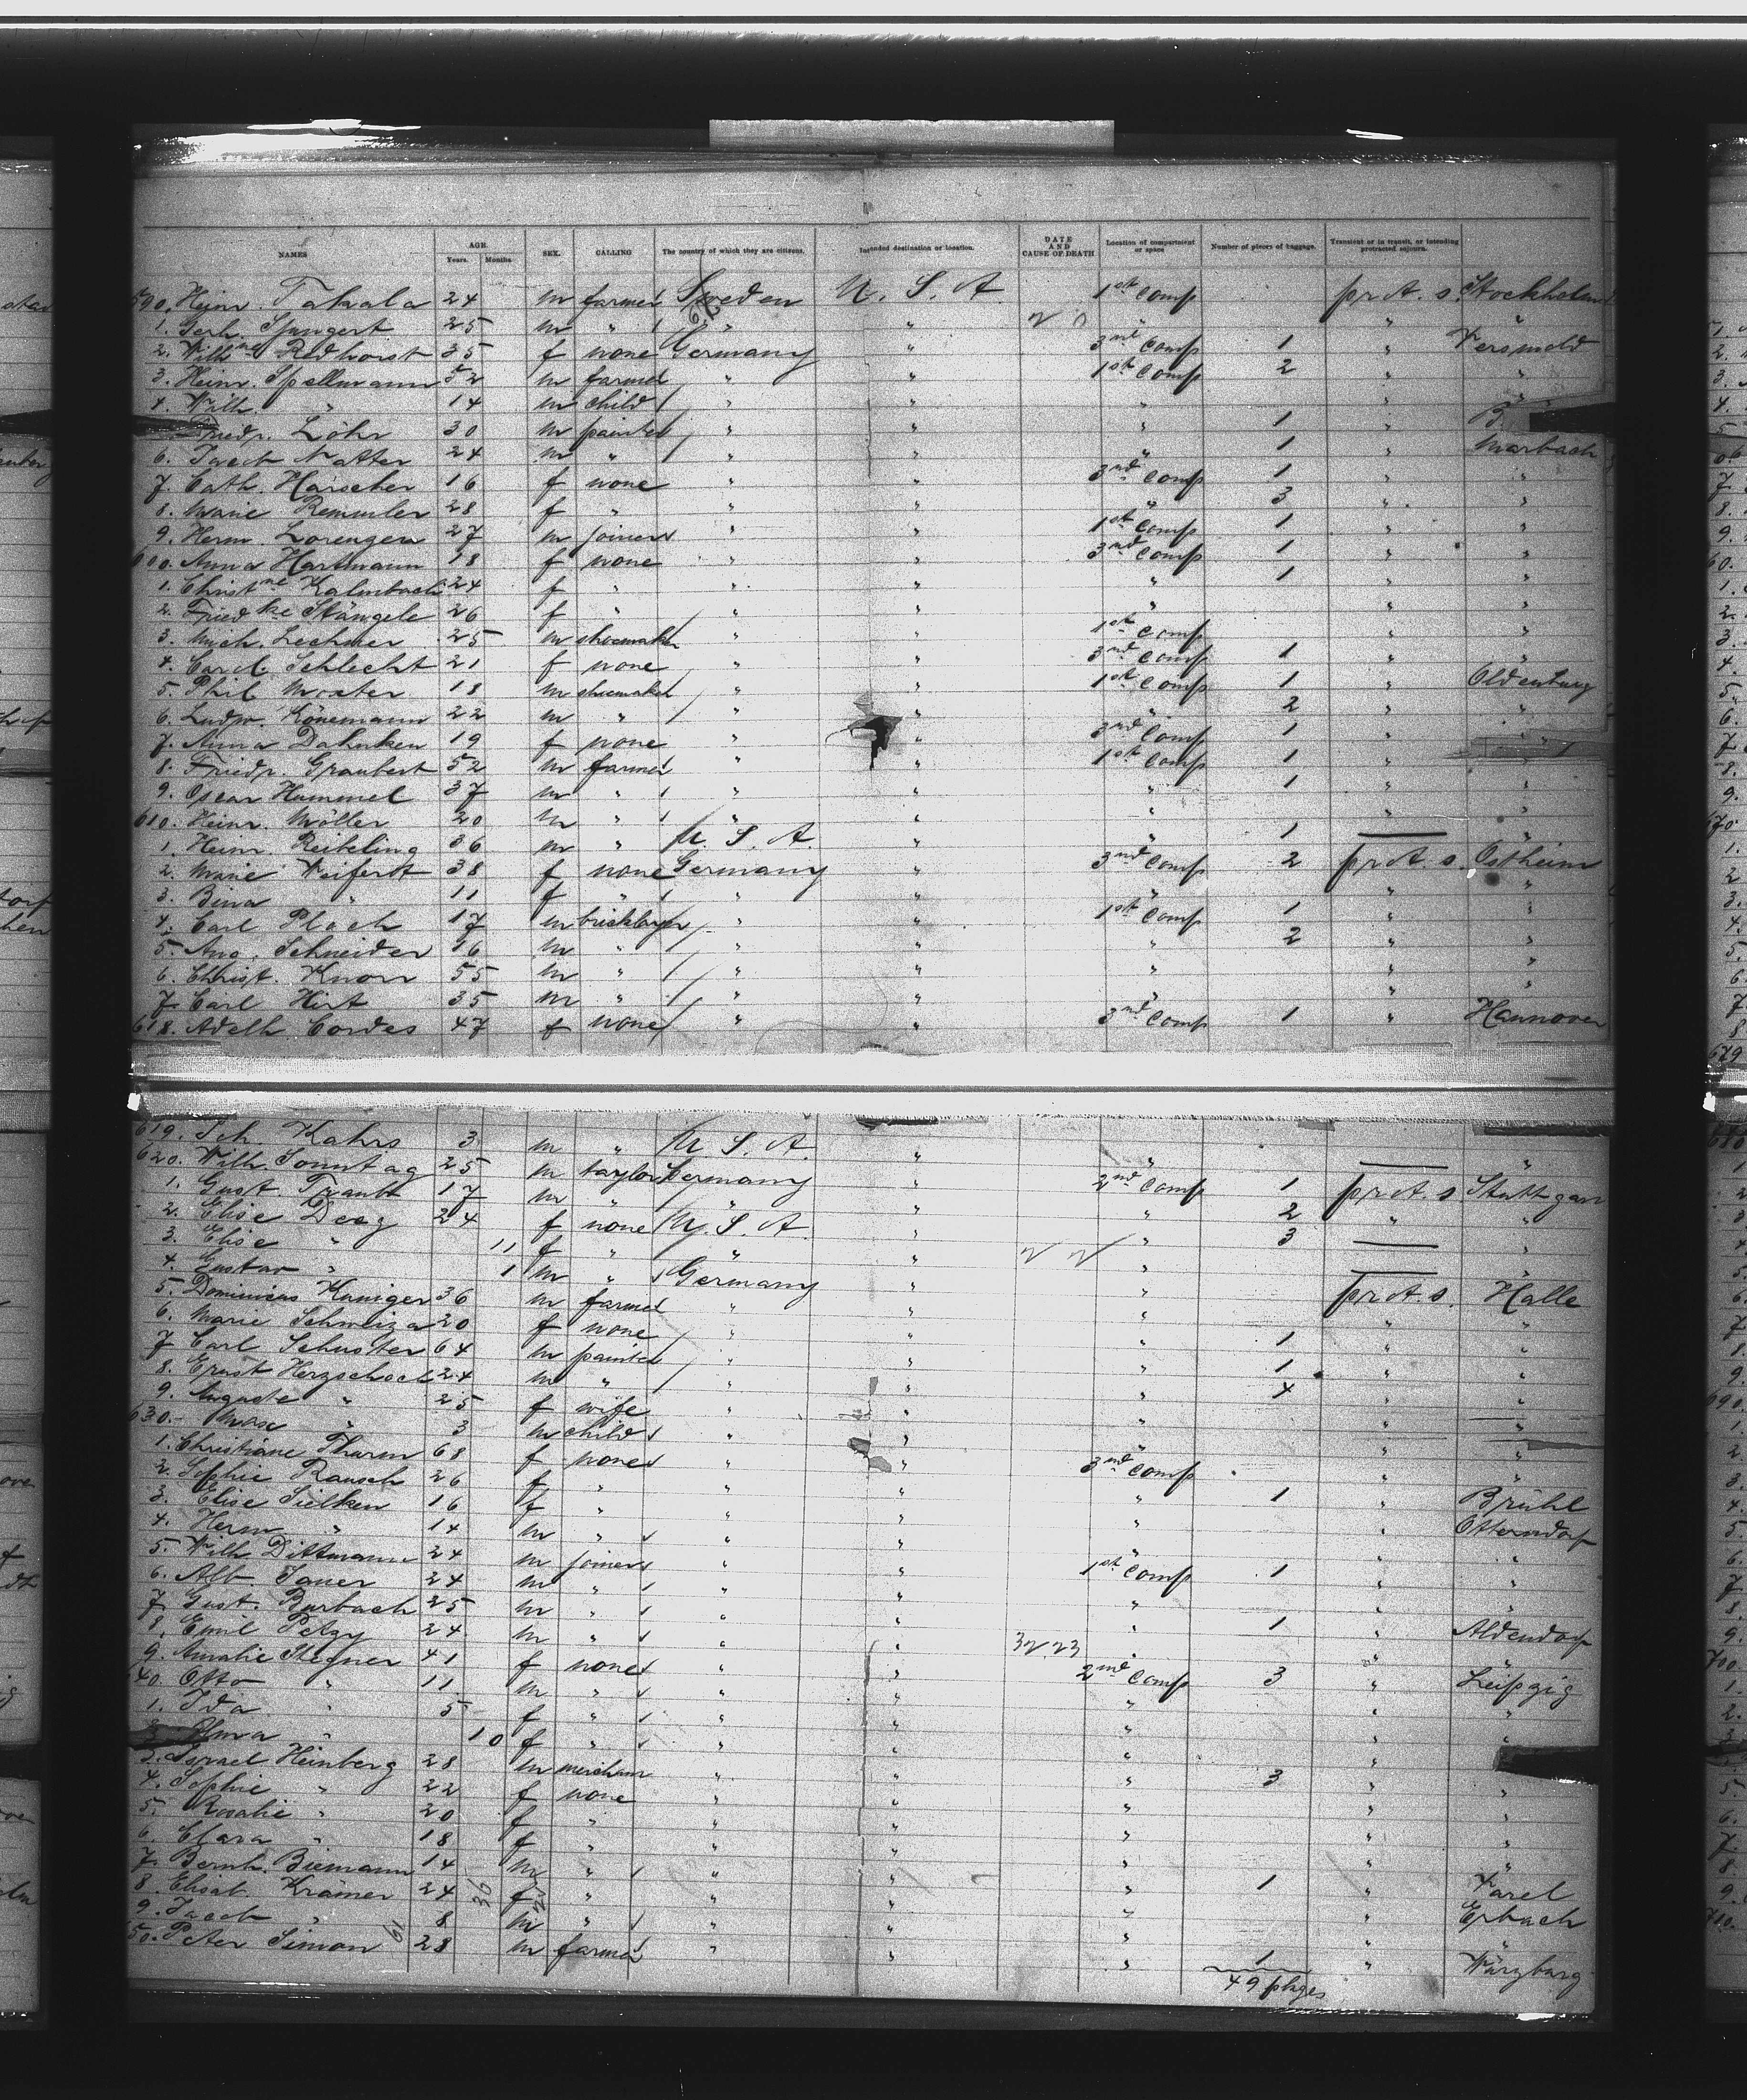 NAMES AGE. Years. Months SEX. CALLING The country of which they are citizens. Intended destination or location. DATE AND CAUSE OF DEATH Location of compartment or space Number of pieces of baggage. Transient or in transit, or intending protracted sojourn.
590. Heinr. Takala 24 m farmer Sweden U. S. A 1st Comp pr. A. s. Stockholm
1. Gerh. Spangert 25 m " " " " "
2. Wilhne Redhorst 35 f none Germany " 3nd Comp 1 " Versmold
3. Heinr. Spellmann 52 m farmer " " 1st Comp 2 " "
4. Wilh. " 14 m child " " " " "
Friedr. Löhr 30 m painter " " " 1 " B
6. Jacob Natter 24 m " " " " 1 " Marbach
7. Cath. Härscher 16 f none " " 3nd Comp 1 " "
8. Marie Remmler 28 f " " " " 3 " "
9. Herm. Lorenzen 27 m joiner " " 1st Comp 1 " "
600. Anna Hartmann 18 f none " " 3nd Comp 1 " "
1. Christne Kalmbach 24 f " " " " 1 " "
2. Friedke Stängele 26 f " " " " " "
3. Mich. Lechner 25 m shoemaker " " 1st Comp " "
4. Carol. Schlecht 21 f none " " 3nd Comp 1 " "
5. Phil. Moxter 18 m shoemaker " " 1st Comp 1 " Oldenburg
6. Ludw. Könemann 22 m " " " " 2 " "
7. Anna Dahnken 19 f none " " 3nd Comp 1 " "
8. Friedr. Graubert 52 m farmer " " 1st Comp 1 " "
9. Oscar Hummel 37 m " " " " 1 " "
610. Heinr. Möller 20 m " " " " " "
1. Heinr. Reibeling 36 m " U. S. A. " " 1 — "
2. Marie Weifert 38 f none Germany " 3nd Comp 2 pr. A. s. Ostheim
3. Bina " 11 f " " " " " "
4. Carl Ploch 17 m bricklayer " " 1st Comp 1 " "
5. Aug. Schneider 16 m " " " " 2 " "
6. Christ. Knorr 55 m " " " " " "
7. Carl Hirt 35 m " " " " " "
618. Adelh. Cordes 47 f none " " 3nd Comp 1 " Hannover
619. Joh. Kahrs 3 m " U. S. A. " " — "
620. Wilh. Sonntag 25 m taylor Germany " 2nd Comp 1 pr. A. s Stuttgart
1. Gust. Traubt 17 m " " " " 2 " "
2. Elise Deeg 24 f none U. S. A. " " 3 — "
3. Elise " 11 f " " " " — "
4. Gustav " 1 m " Germany " " pr. A. s. Halle
5. Dominicus Kaniger 36 m farmer " " " " "
6. Marie Schweiza 20 f none " " " 1 " "
7. Carl Schuster 64 m painter " " " 1 " "
8. Ernst Herzschoch 24 m " " " " 4 " "
9. Auguste " 25 f wife " " " " "
630. Max " 3 m child " " " " "
1. Christiane Thurm 68 f none " " 3nd Comp " "
2. Sophie Rausch 26 f " " " " 1 " Brühl
3. Elise Sielken 16 f " " " " " Otterndorf
4. Herm " 14 m " " " " " "
5. Wilh. Dittmann 24 m joiner " " 1st Comp 1 " "
6. Alb. Sauer 24 m " " " " " "
7. Gust. Burbach 25 m " " " " 1 " Aldendorf
8. Emil Petzy 24 m " " " " " "
9. Amalie Stegner 41 f none " " 2nd Comp 3 " Leipzig
40. Otto " 11 m " " " " " "
1. Ida " 5 f " " " " " "
Alma " 10 f " " " " " "
3. Israel Heinberg 28 m merchan " " " 3 " "
4. Sophie " 22 f none " " " " "
5. Rosalie " 20 f " " " " " "
6. Clara " 18 f " " " " " "
7. Bernh. Biemann 14 m " " " " 1 " Varel
8. Elisab. Krämer 24 f " " " " " Erbach
9. Jacob " 8 m " " " " " "
50. Peter Simon 28 m farmer " " " 1 " Würzburg
49 pkges